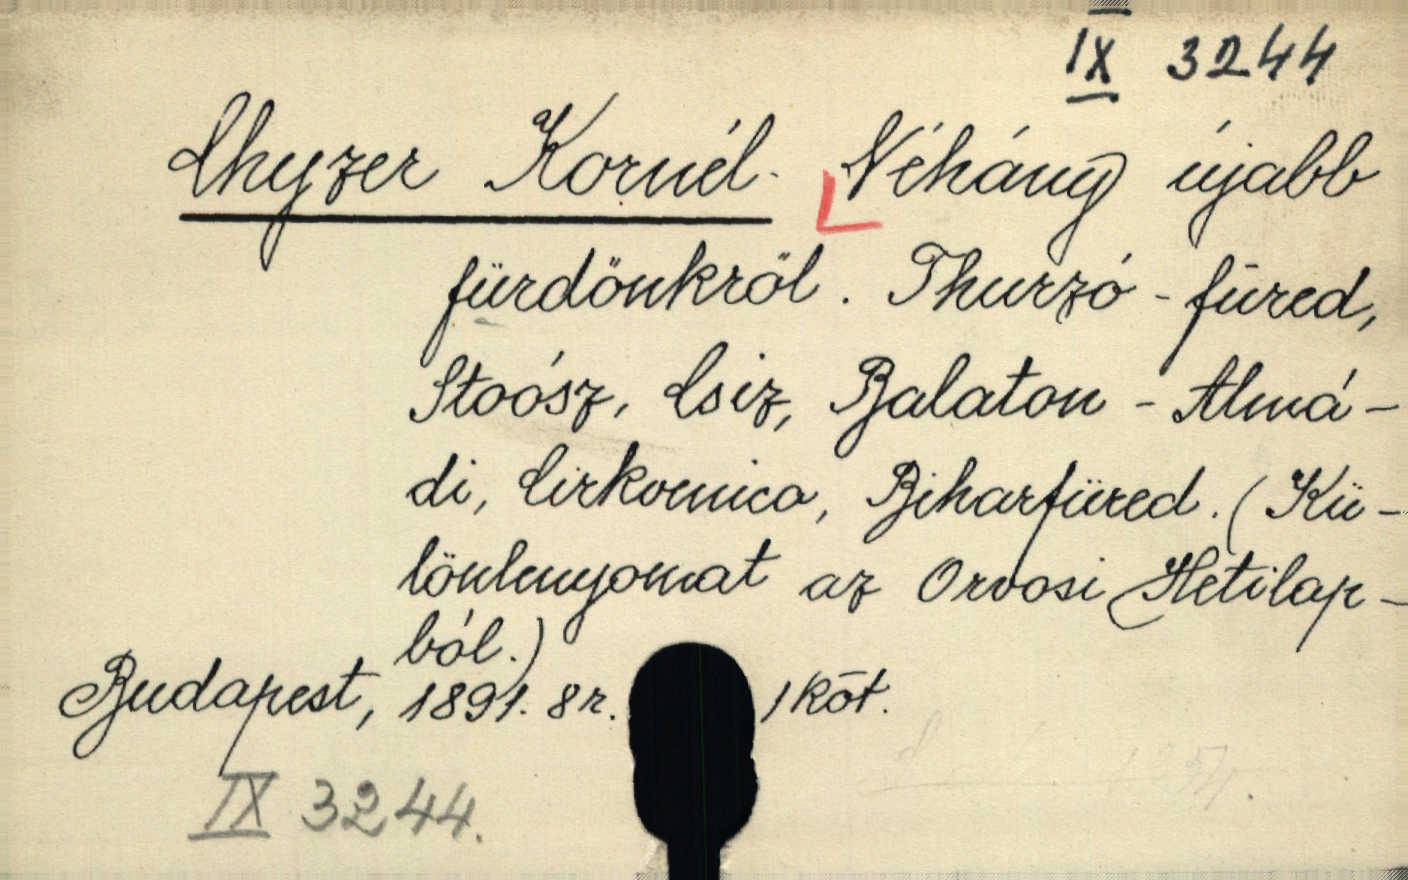 IX 3244
Chyzer Kornél. Néhány újabb
fürdőnkről. Thurzó-füred,
Stoósz, Csiz, Balaton-Almá-
di, Cirkvenica, Biharfüred. (Kü-
lönlenyomat az Orvosi Hetilap-
ból.)
Budapest, 1891. 8r. 1 köt.
IX 3244.